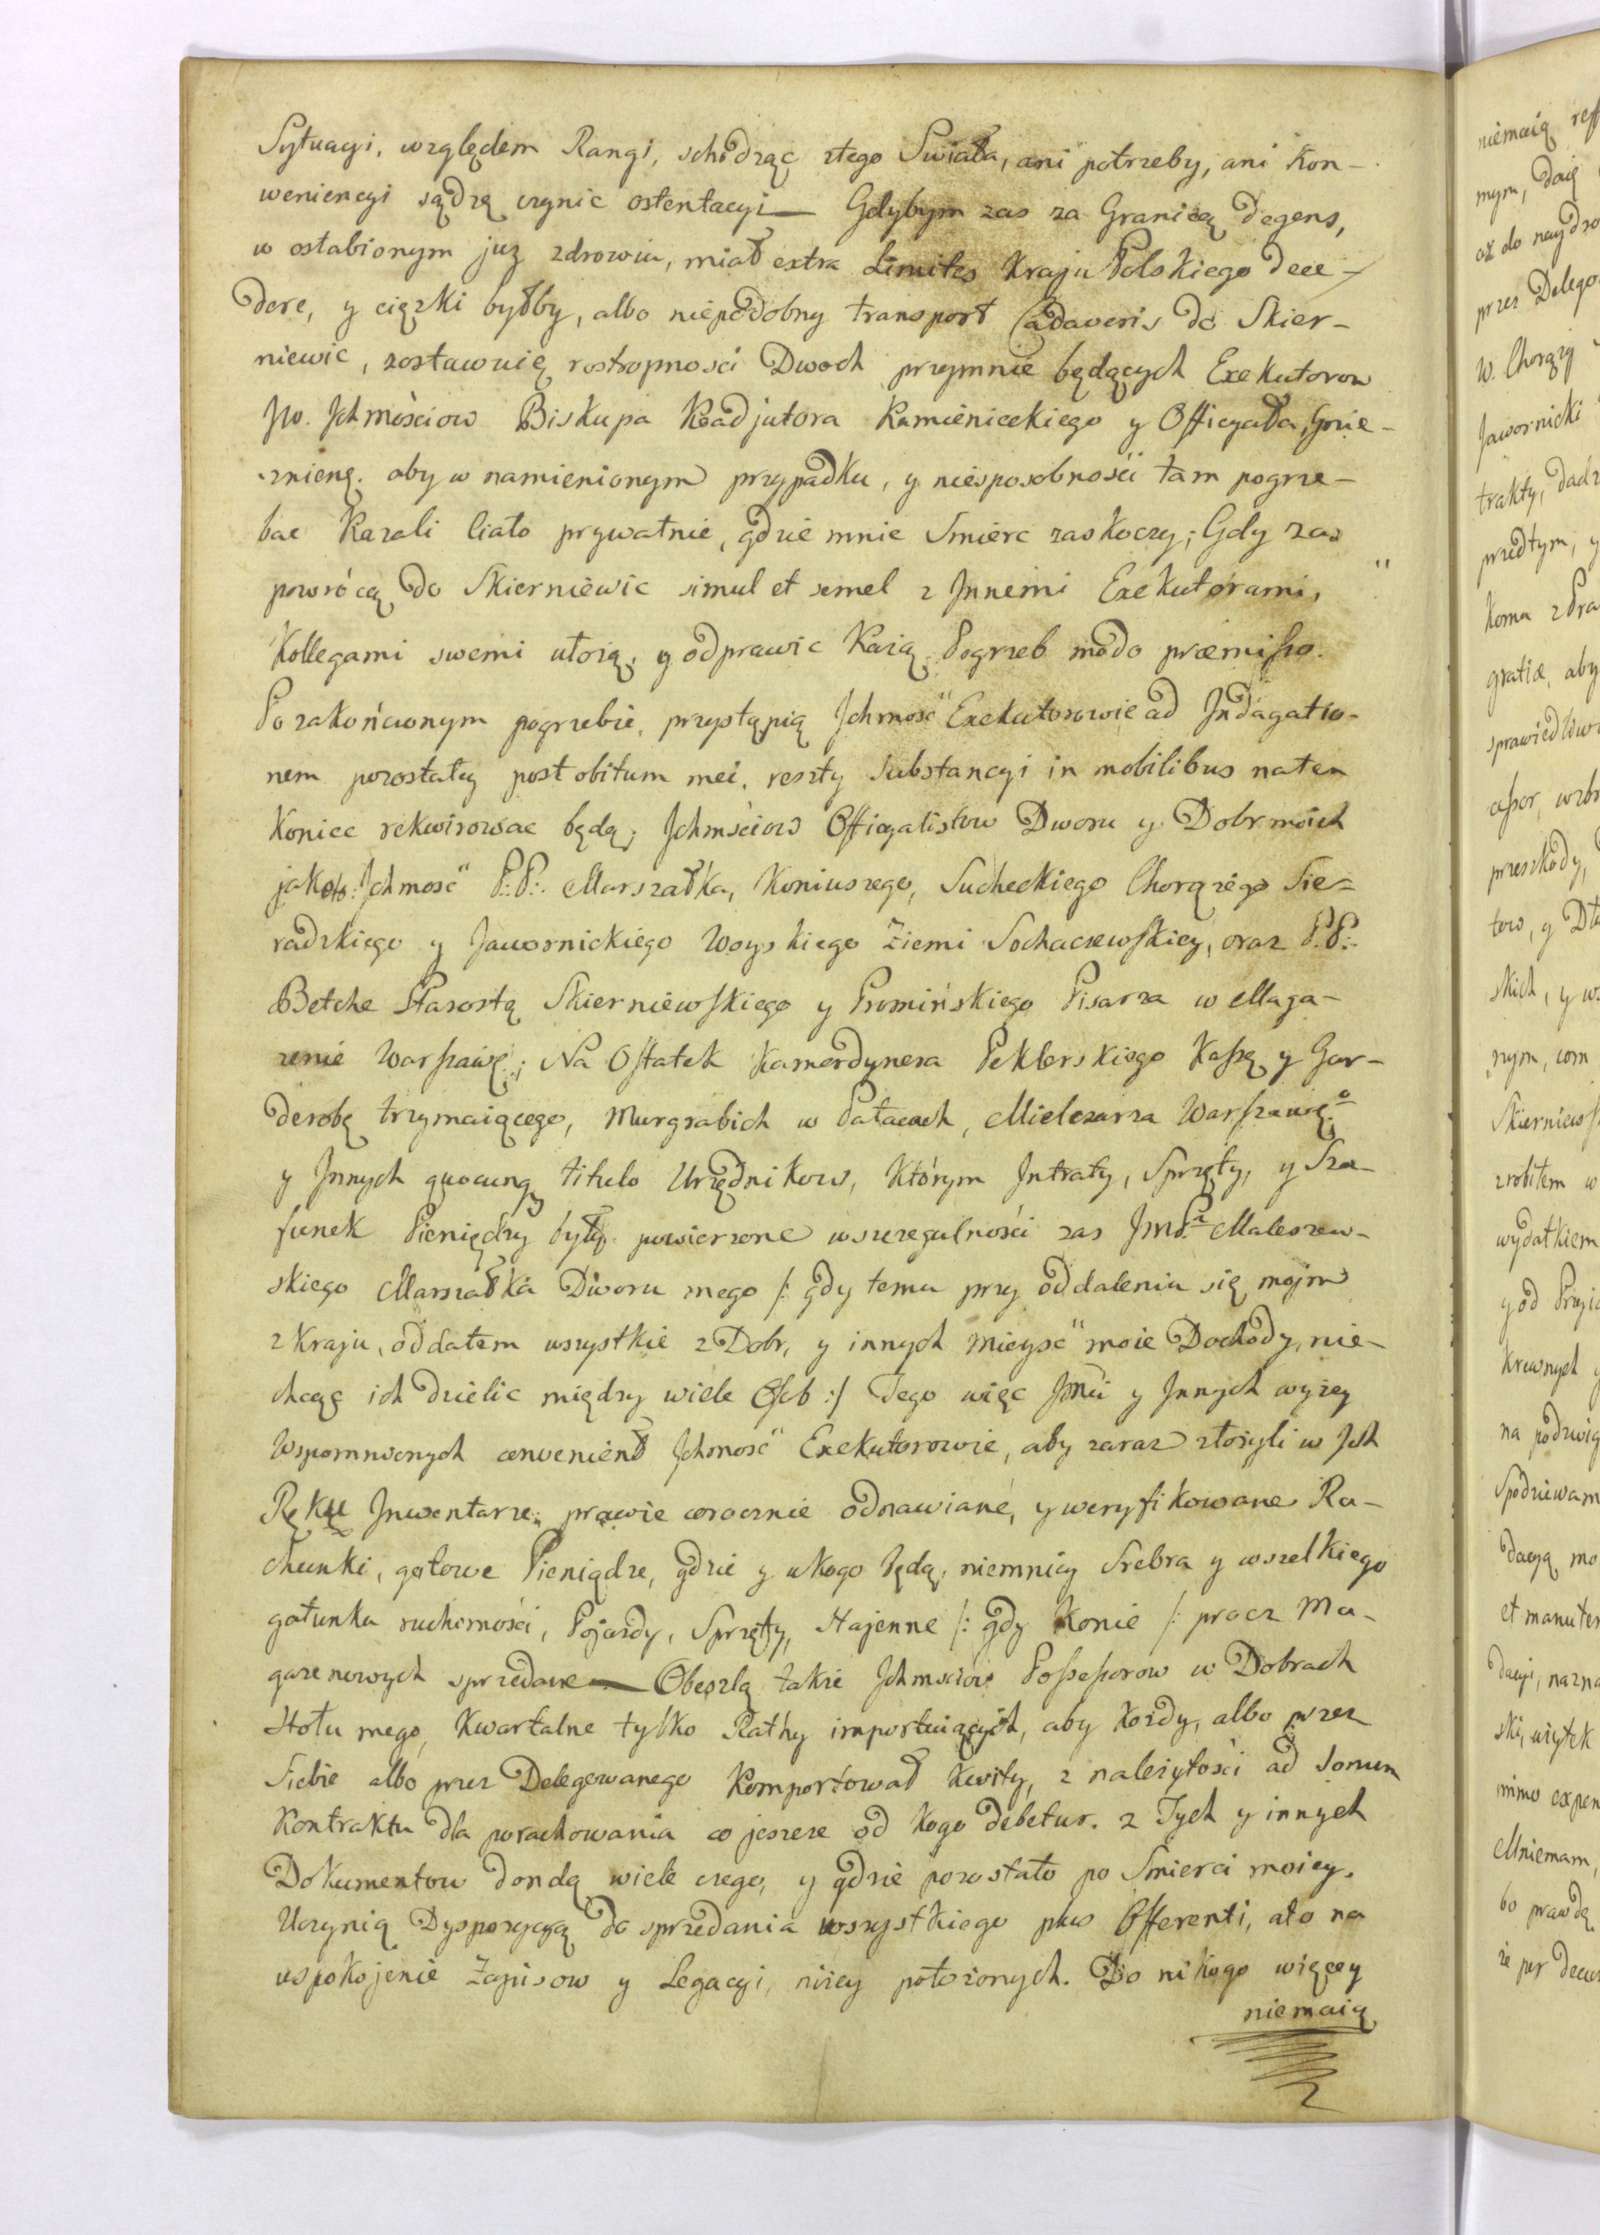 Sytuacyi, względem Rangi, schodząc ztego Swiata, ani potrzeby, ani Kon-
weniencyi sądzą czynic ostentacyi — Gdybym zas za Granicą degens,
w osłabionym juz zdrowiu, miał extra Limites Kraju Polskiego dece-
dere, y cięzki byłby, albo niepodobny transport Cadaveris do Skier-
niewic, zostawuię rostropnosci Dwoch przymnie będących Exekutorow
JW. Jchmościow Biskupa Koadjutora Kamienieckiego y Officyała Gnie-
znienę. aby w namienionym przypadku, y niesposobności tam pogrze-
bac Kazali Ciało prywatnie, gdzie mnie Smierc zaskoczy; Gdy zas
powrócą do Skierniewic simul et semel z Jnnemi Exekutorami,
Kollegami swemi ułożą, y odprawic Każą Pogrzeb modo præmisso.
Po zakończonym pogrzebie, przystąpią Jchmość Exekutorowie ad Jndagatio-
nem pozostałey post obitum mei, reszty Substancyi in mobilibus naten
Koniec rekwirowac będą; Jchmściow Officyalistow Dworu y Dobr moich
jako to: Jchmość P:P: Marszałka, Koniuszego, Sucheckiego Chorążego Sie-
radzkiego y Jawornickiego Woyskiego Ziemi Sochaczewskiey, oraz P:P:
Betche Starostę Skierniewskiego y Promińskiego Pisarza w Maga-
zenie Warszawę; Na Ostatek Kamerdynera Peklerskiego Kassę y Gar-
derobę trzymaiącego, Murgrabich w Pałacach, Mielcarza Warszawę°
y Jnnych quocunq titulo Urzędnikow, Którym Jntraty, Sprzęty, y Sza-
funek Pieniędzy były powierzone wszczegulności zas JmPa Maleszew-
skiego Marszałka Dworu mego /: gdy temu przy oddaleniu się mojm
z Kraju, oddałem wszystkie z Dobr, y innych Mieysc moie Dochody, nie-
chcąc ich dzielic między wiele Osob :/ Tego więc Jmci y Jnnych wyżey
Wspomnionych convenient Jchmość Exekutorowie, aby zaraz złożyli w Jch
Ręku Jnwentarze, prawie corocznie odnawiane, y weryfikowane Ra-
chunki, gotowe Pieniądze, gdzie y ukogo będą, niemniey Srebra y wszelkiego
gatunku ruchomości, Pojazdy, Sprzęty, Stajenne /: gdy Konie /: procz Ma-
gazenowych sprzedane — Obeszlą także Jchmsciow Possessorow w Dobrach
Stołu mego, Kwartalne tylko Rathy importuiących, aby Każdy, albo przez
Siebie albo przez Delegowanego Komportował Kwity, z należytości ad Sonum
Kontraktu dla porachowania co jeszcze od Kogo debetur. z Tych y innych
Dokumentow dondą wiele czego, y gdzie pozostało po Smierci moiey.
Uczynią Dyspozycyą do sprzedania wszystkiego plus Offerenti, ato na
uspokojenie Zapisow y Legacyi, niżey położonych. Do nikogo więcey
niemaią